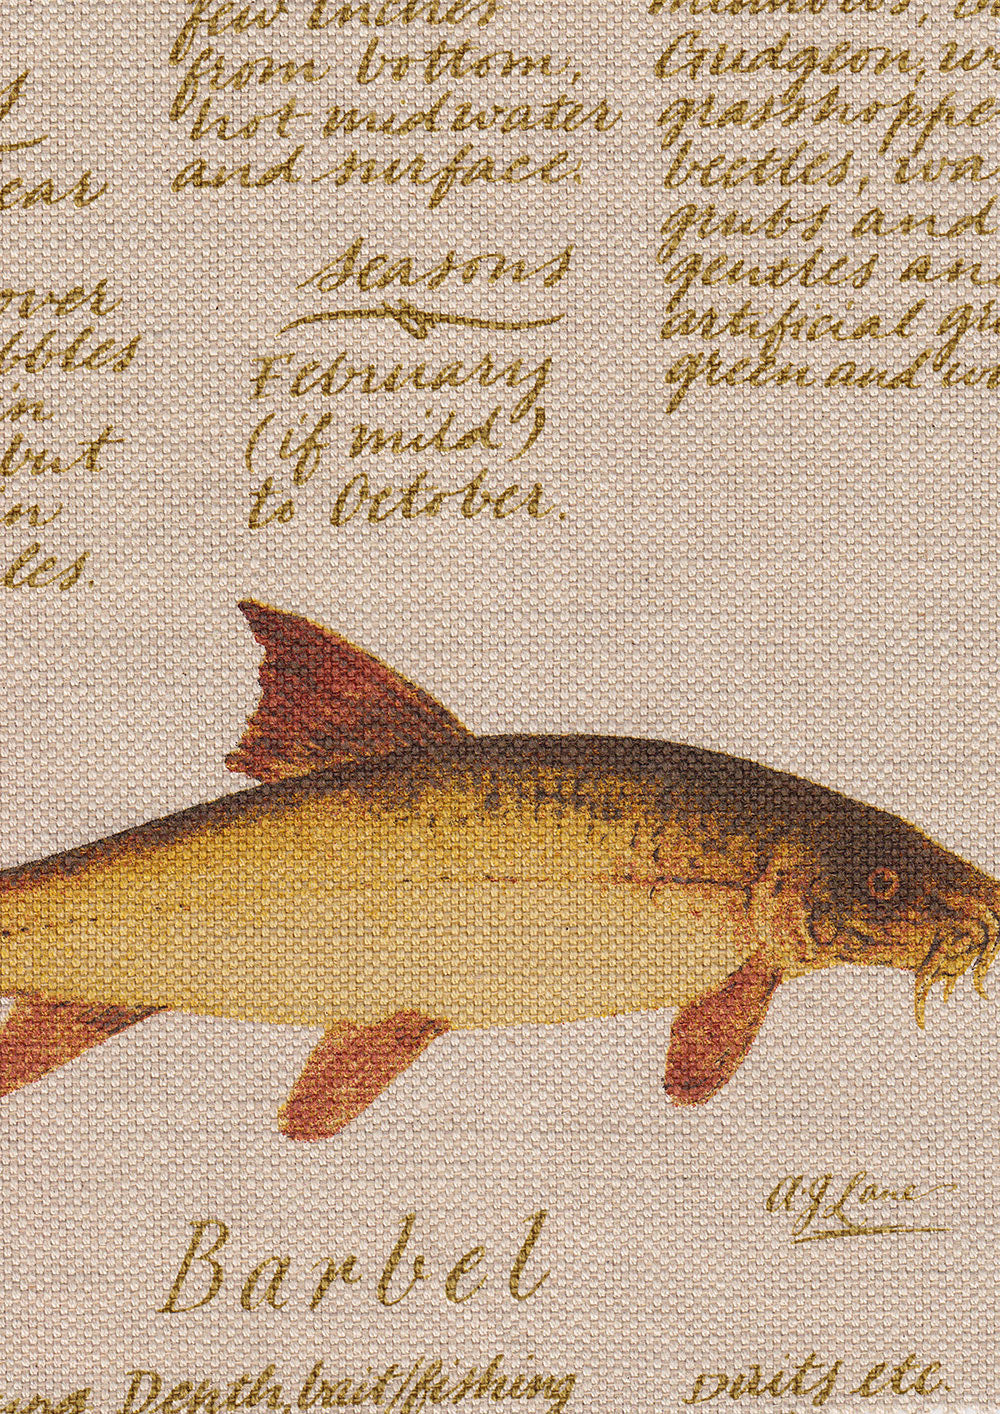 ear
over
bbles
in
but
les.
few inches
from bottom,
not midwater
and surface.
Seasons
February
(if mild)
to October.
minnows,
Gudgeon, w
grasshoppe
beetles, wa
grubs and
gentles an
artificial gr
green and wo
A.G Lane
Barbel
Depth, bait/fishing
Baits etc.